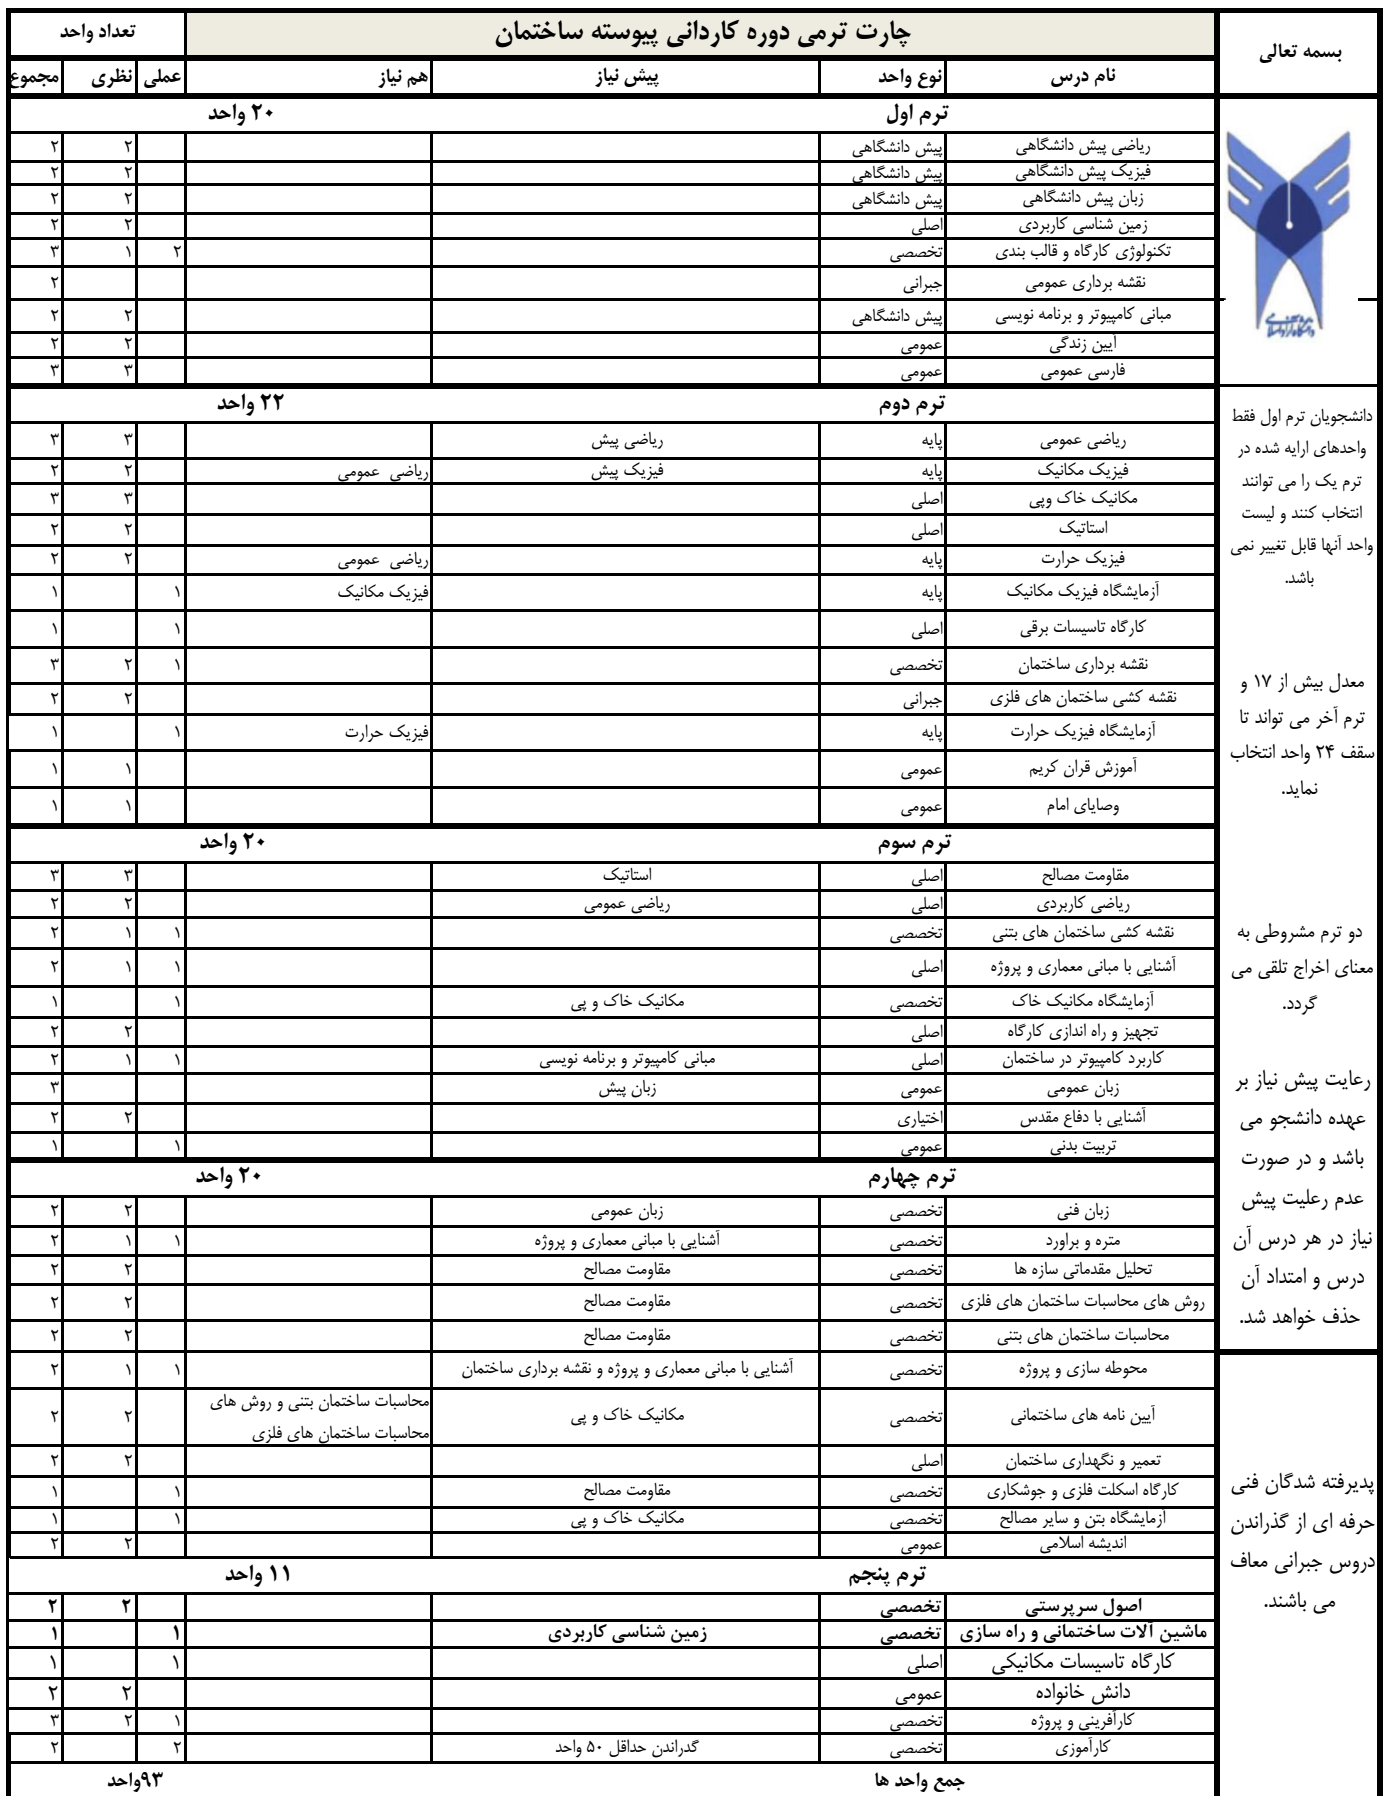 بسمه تعالی
چارت ترمی دوره کاردانی پیوسته ساختمان
تعداد واحد
نام درس نوع واحد پیش نیاز هم نیاز عملی نظری مجموع
ترم اول ۲۰ واحد
ریاضی پیش دانشگاهی پیش دانشگاهی ۲ ۲
فیزیک پیش دانشگاهی پیش دانشگاهی ۲ ۲
زبان پیش دانشگاهی پیش دانشگاهی ۲ ۲
زمین شناسی کاربردی اصلی ۲ ۲
تکنولوژی کارگاه و قالب بندی تخصصی ۲ ۱ ۳
نقشه برداری عمومی جبرانی ۲
مبانی کامپیوتر و برنامه نویسی پیش دانشگاهی ۲ ۲
آیین زندگی عمومی ۲ ۲
فارسی عمومی عمومی ۳ ۳
ترم دوم ۲۲ واحد
ریاضی عمومی پایه ریاضی پیش ۳ ۳
فیزیک مکانیک پایه فیزیک پیش ریاضی عمومی ۲ ۲
مکانیک خاک وپی اصلی ۳ ۳
استاتیک اصلی ۲ ۲
فیزیک حرارت پایه ریاضی عمومی ۲ ۲
آزمایشگاه فیزیک مکانیک پایه فیزیک مکانیک ۱ ۱
کارگاه تاسیسات برقی اصلی ۱ ۱
نقشه برداری ساختمان تخصصی ۱ ۲ ۳
نقشه کشی ساختمان های فلزی جبرانی ۲ ۲
آزمایشگاه فیزیک حرارت پایه فیزیک حرارت ۱ ۱
آموزش قران کریم عمومی ۱ ۱
وصایای امام عمومی ۱ ۱
ترم سوم ۲۰ واحد
مقاومت مصالح اصلی استاتیک ۳ ۳
ریاضی کاربردی اصلی ریاضی عمومی ۲ ۲
نقشه کشی ساختمان های بتنی تخصصی ۱ ۱ ۲
آشنایی با مبانی معماری و پروژه اصلی ۱ ۱ ۲
آزمایشگاه مکانیک خاک تخصصی مکانیک خاک و پی ۱ ۱
تجهیز و راه اندازی کارگاه اصلی ۲ ۲
کاربرد کامپیوتر در ساختمان اصلی مبانی کامپیوتر و برنامه نویسی ۱ ۱ ۲
زبان عمومی عمومی زبان پیش ۳
آشنایی با دفاع مقدس اختیاری ۲ ۲
تربیت بدنی عمومی ۱ ۱
ترم چهارم ۲۰ واحد
زبان فنی تخصصی زبان عمومی ۲ ۲
متره و براورد تخصصی آشنایی با مبانی معماری و پروژه ۱ ۱ ۲
تحلیل مقدماتی سازه ها تخصصی مقاومت مصالح ۲ ۲
روش های محاسبات ساختمان های فلزی تخصصی مقاومت مصالح ۲ ۲
محاسبات ساختمان های بتنی تخصصی مقاومت مصالح ۲ ۲
محوطه سازی و پروژه تخصصی آشنایی با مبانی معماری و پروژه و نقشه برداری ساختمان ۱ ۱ ۲
آیین نامه های ساختمانی تخصصی مکانیک خاک و پی محاسبات ساختمان بتنی و روش های
محاسبات ساختمان های فلزی ۲ ۲
تعمیر و نگهداری ساختمان اصلی ۲ ۲
کارگاه اسکلت فلزی و جوشکاری تخصصی مقاومت مصالح ۱ ۱
آزمایشگاه بتن و سایر مصالح تخصصی مکانیک خاک و پی ۱ ۱
اندیشه اسلامی عمومی ۲ ۲
ترم پنجم ۱۱ واحد
اصول سرپرستی تخصصی ۲ ۲
ماشین آلات ساختمانی و راه سازی تخصصی زمین شناسی کاربردی ۱ ۱
کارگاه تاسیسات مکانیکی اصلی ۱ ۱
دانش خانواده عمومی ۲ ۲
کارآفرینی و پروژه تخصصی ۱ ۲ ۳
کارآموزی تخصصی گدراندن حداقل ۵۰ واحد ۲ ۲
جمع واحد ها ۹۳واحد
دانشجویان ترم اول فقط
واحدهای ارایه شده در
ترم یک را می توانند
انتخاب کنند و لیست
واحد آنها قابل تغییر نمی
باشد.
معدل بیش از ۱۷ و
ترم آخر می تواند تا
سقف ۲۴ واحد انتخاب
نماید.
دو ترم مشروطی به
معنای اخراج تلقی می
گردد.
رعایت پیش نیاز بر
عهده دانشجو می
باشد و در صورت
عدم رعلیت پیش
نیاز در هر درس آن
درس و امتداد آن
حذف خواهد شد.
پدیرفته شدگان فنی
حرفه ای از گذراندن
دروس جبرانی معاف
می باشند.